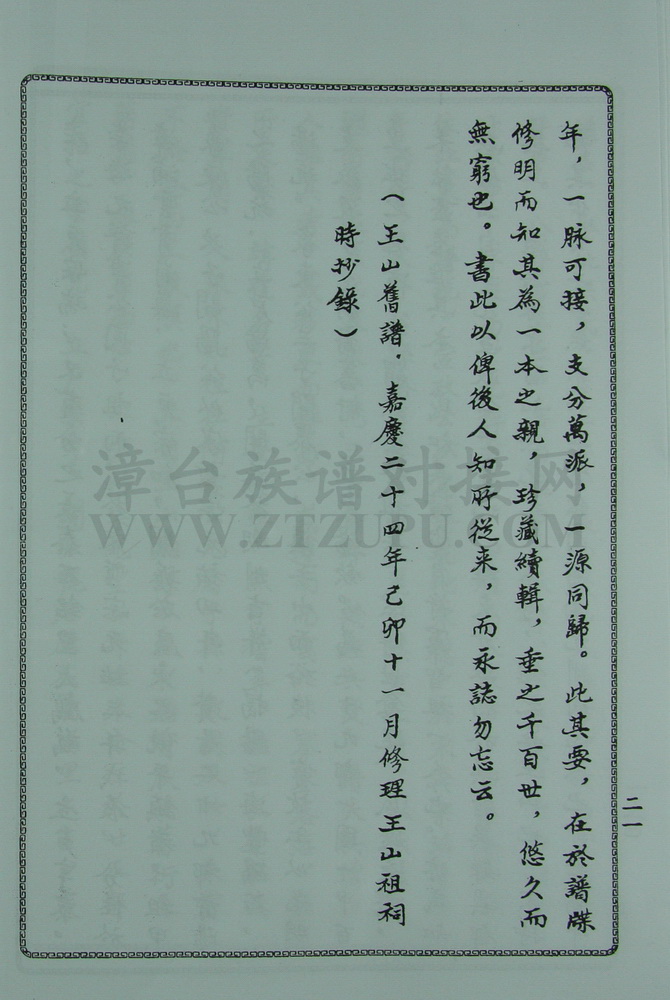 年，一脉可接，支分萬派，一源同歸。此其要，在於譜牒
修明而知其為一本之親，珍藏續輯，垂之千百世，悠久而
無窮也。書此以俾後人知所從来，而永誌勿忘云。
（王山舊譜．嘉慶二十四年己卯十一月修理王山祖祠
時抄錄）
二一
漳台族谱对接网
WWW.ZTZUPU.COM